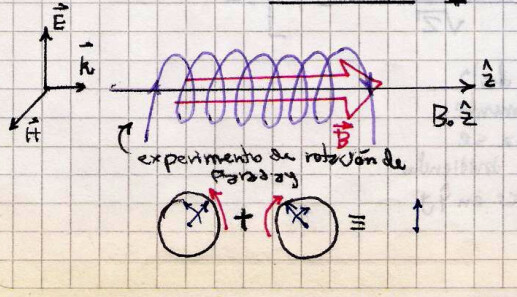 E
k
H
B
ẑ
B₀ ẑ
experimento de rotación de
Faraday
+ ≡